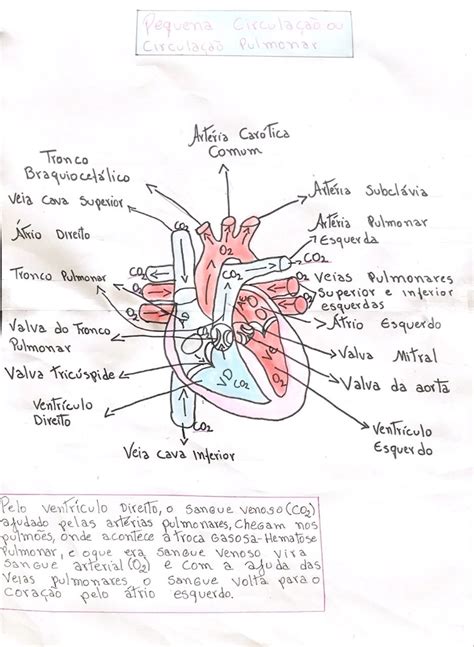 Pequena Circulação ou
Circulação Pulmonar
Artéria Carótica
Comum
Tronco
Braquiocefálico
Veia Cava Superior
Átrio Direito
Tronco Pulmonar
Valva do Tronco
Pulmonar
Valva tricúspide
Ventrículo
Direito
Veia Cava Inferior
Artéria Subclávia
Artéria Pulmonar
Esquerda
Veias Pulmonares
Superior e inferior
esquerdas
Átrio Esquerdo
Valva Mitral
Valva da aorta
Ventrículo
Esquerdo
CO2
O2
CO2
CO2
CO2
CO2
O2
O2
O2
O2
O2
CO2
O2
CO2
Pelo Ventrículo Direito, o sangue venoso (CO2)
ajudado pelas artérias pulmonares, chegam nos
pulmões, onde acontece a troca Gasosa-Hematose
Pulmonar, e o que era sangue venoso vira
sangue arterial (O2) e com a ajuda das
veias pulmonares o sangue volta para o
coração pelo átrio esquerdo.